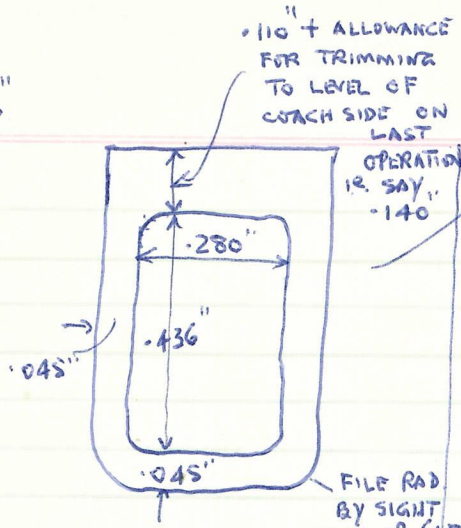 .110" + ALLOWANCE
FOR TRIMMING
TO LEVEL OF
COACH SIDE ON
LAST
OPERATION
IE SAY
.140"
.280"
.436"
.045"
.045"
FILE RAD
BY SIGHT